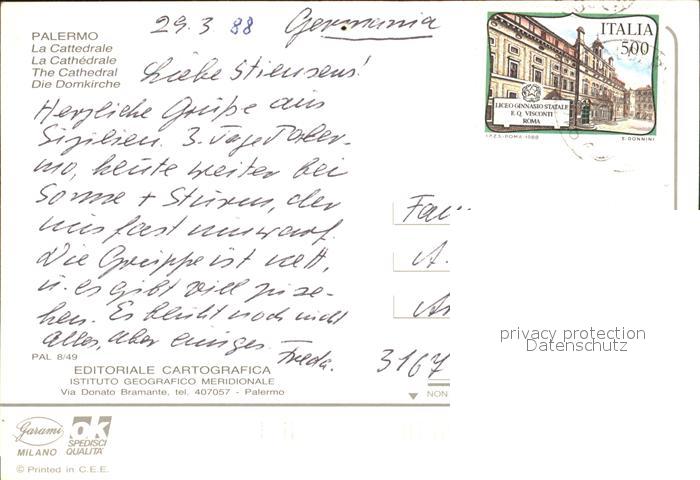 29.3 88 Germania
PALERMO
La Cattedrale
La Cathédrale
The Cathedral
Die Domkirche
ITALIA
500
LICEO GINNASIO STATALE
E.Q. VISCONTI
ROMA
I.P.Z.S.-ROMA-1988 E. DONNINI
Liebe Stiensens!
Herzliche Grüße aus
Sizilien. 3 Tage Paler-
mo, heute weiter bei
Sonne + Sturm, der
uns fast umwarf.
Die Gruppe ist nett,
u. es gibt viel zu se-
hen. Es bleibt noch nicht
alles, aber einiges.
Freda.
Fam
A.
3167
PAL 8/49
EDITORIALE CARTOGRAFICA
ISTITUTO GEOGRAFICO MERIDIONALE
Via Donato Bramante, tel. 407057 - Palermo
NON
privacy protection
Datenschutz
Garami
MILANO
OK
SPEDISCI
QUALITÀ
© Printed in C.E.E.